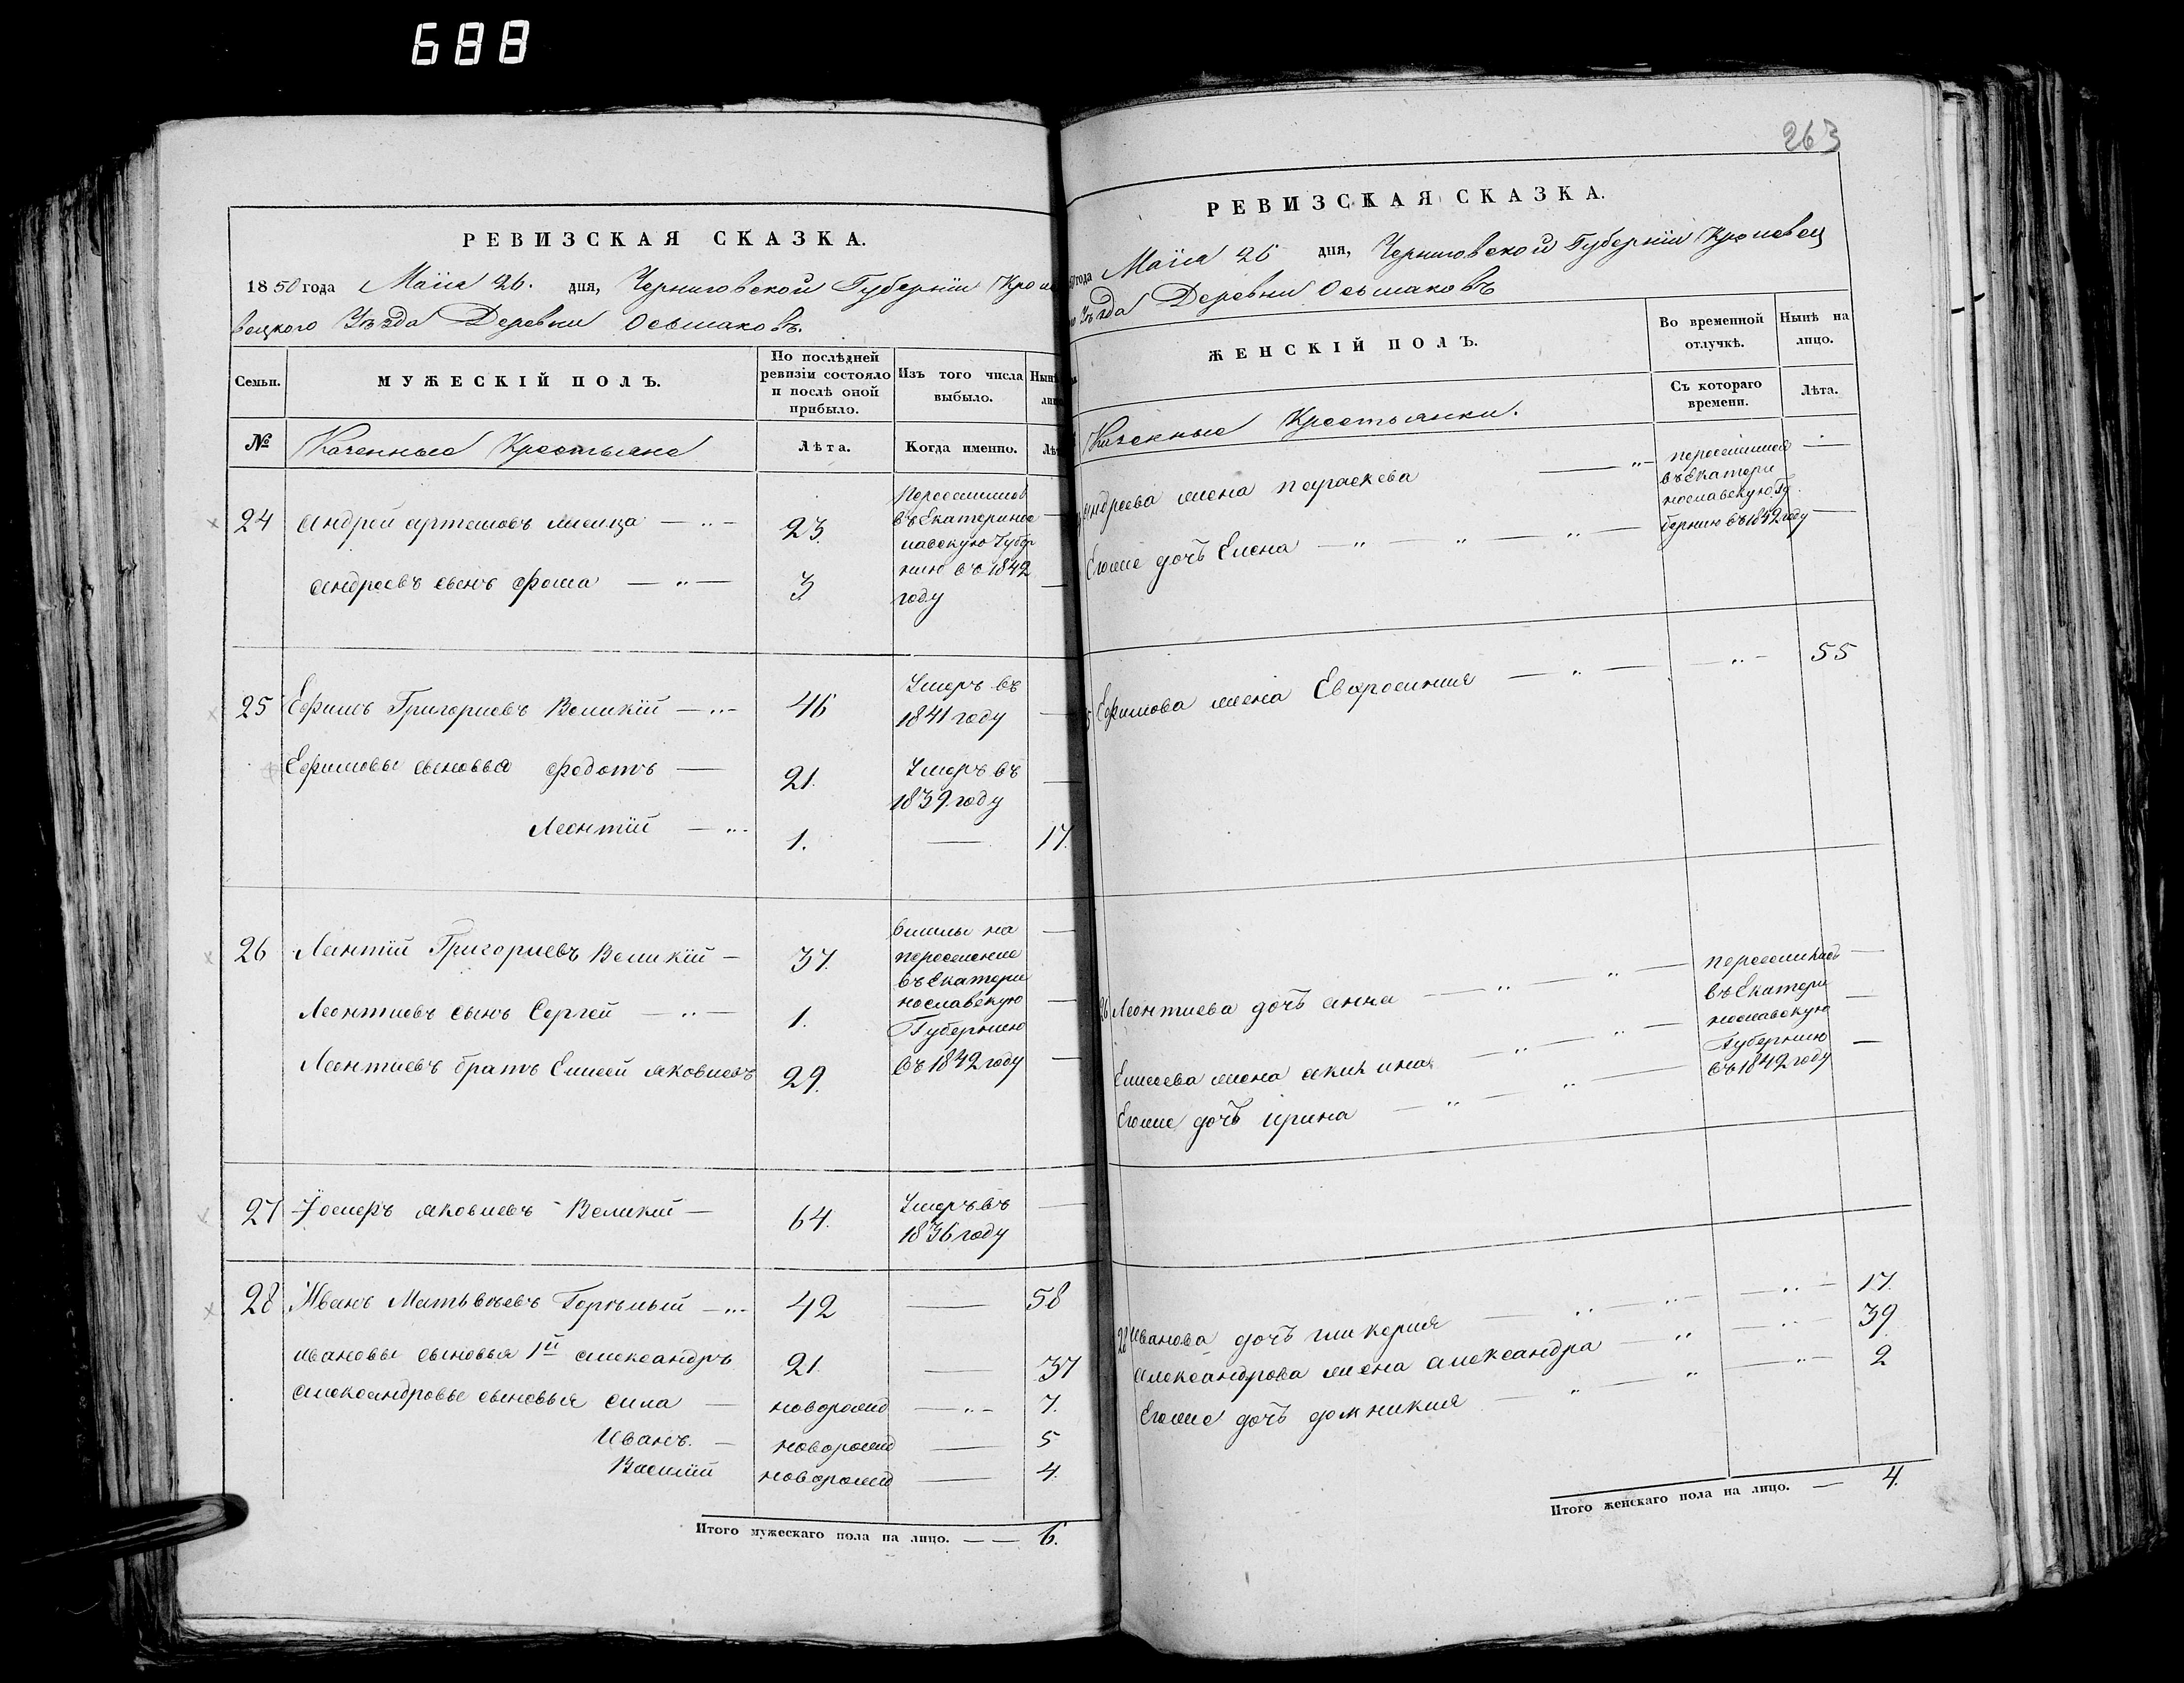 688
РЕВИЗСКАЯ СКАЗКА.
1850 года Маія 26. дня, Черниговской Губерніи Кроле
вецкого Уѣзда Деревни Осьмаковъ.
Семьи.
МУЖЕСКІЙ ПОЛЪ.
По послѣдней
ревизіи состояло
и послѣ оной
прибыло.
Изъ того числа
выбыло.
№
Казенные Крестьяне
Лѣта.
Когда именно.
24 Андрей Артемовъ
23.
Андреевъ сынъ Фома
3
Переселились
въ Екатеринос
лавскую Губер
нию въ 1842
году
25 Ефимъ Григориевъ Великій
46
Умеръ въ
1841 году
Ефимовы сыновья Федотъ
21.
Умеръ въ
1839. году
Леонтій
1.
17.
26 Леонтій Григориевъ Великій
37.
Леонтиевъ сынъ Сергей
1.
Леонтиевъ братъ Елисей Яковлевъ
29.
на
переселение
въ Екатери
нославскую
Губернию
въ 1842 году
27 Яковлевъ Великій
64.
Умеръ въ
1836 году
28 Иванъ Матьвѣевъ
42
58
Ивановы сыновья 1й Александръ
21.
37
Александровы сыновья Сила
новорожд
7.
Иванъ.
новорожд
5
Василій
новорожд
4.
Итого мужескаго пола на лицо. 6.
263
РЕВИЗСКАЯ СКАЗКА.
года Маія 26 дня, Черниговской Губерніи Кролевец
Уѣзда Деревни Осьмаковъ
ЖЕНСКІЙ ПОЛЪ.
Во временной
отлучкѣ.
Нынѣ на
лицо.
Съ котораго
времени.
Лѣта.
Казенные Крестьянки.
Андреева жена Параскева
Егоже дочь Елена
переселились
въ Екатери
нославскую Гу
бернию въ 1842 году
Ефимова жена Евфросиния
55
26 Леонтиева дочь Анна
Елисеева жена Акилина
Егоже дочь Ирина
переселились
въ Екатери
нославскую
Губернию
въ 1842 году
28 Иванова дочь Гликерия
17.
Александрова жена Александра
39
Егоже дочь Домникия
2
Итого женскаго пола на лицо. 4.